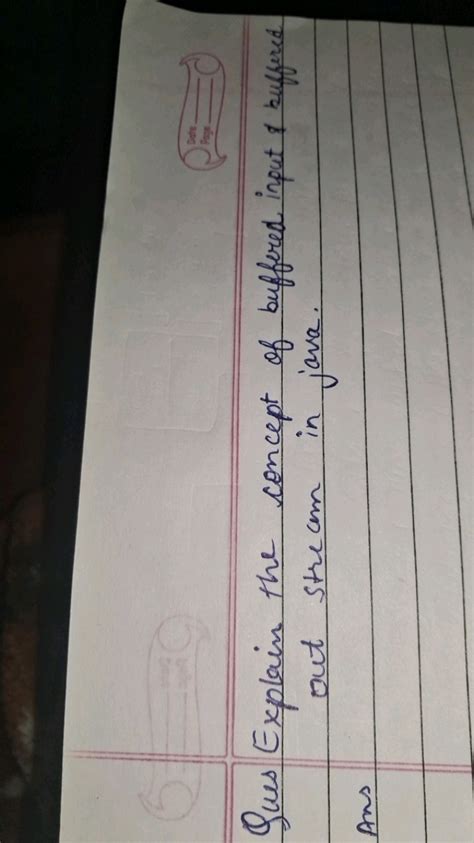 Date
Page
Ques Explain the concept of buffered input & buffered
out stream in java.
Ans